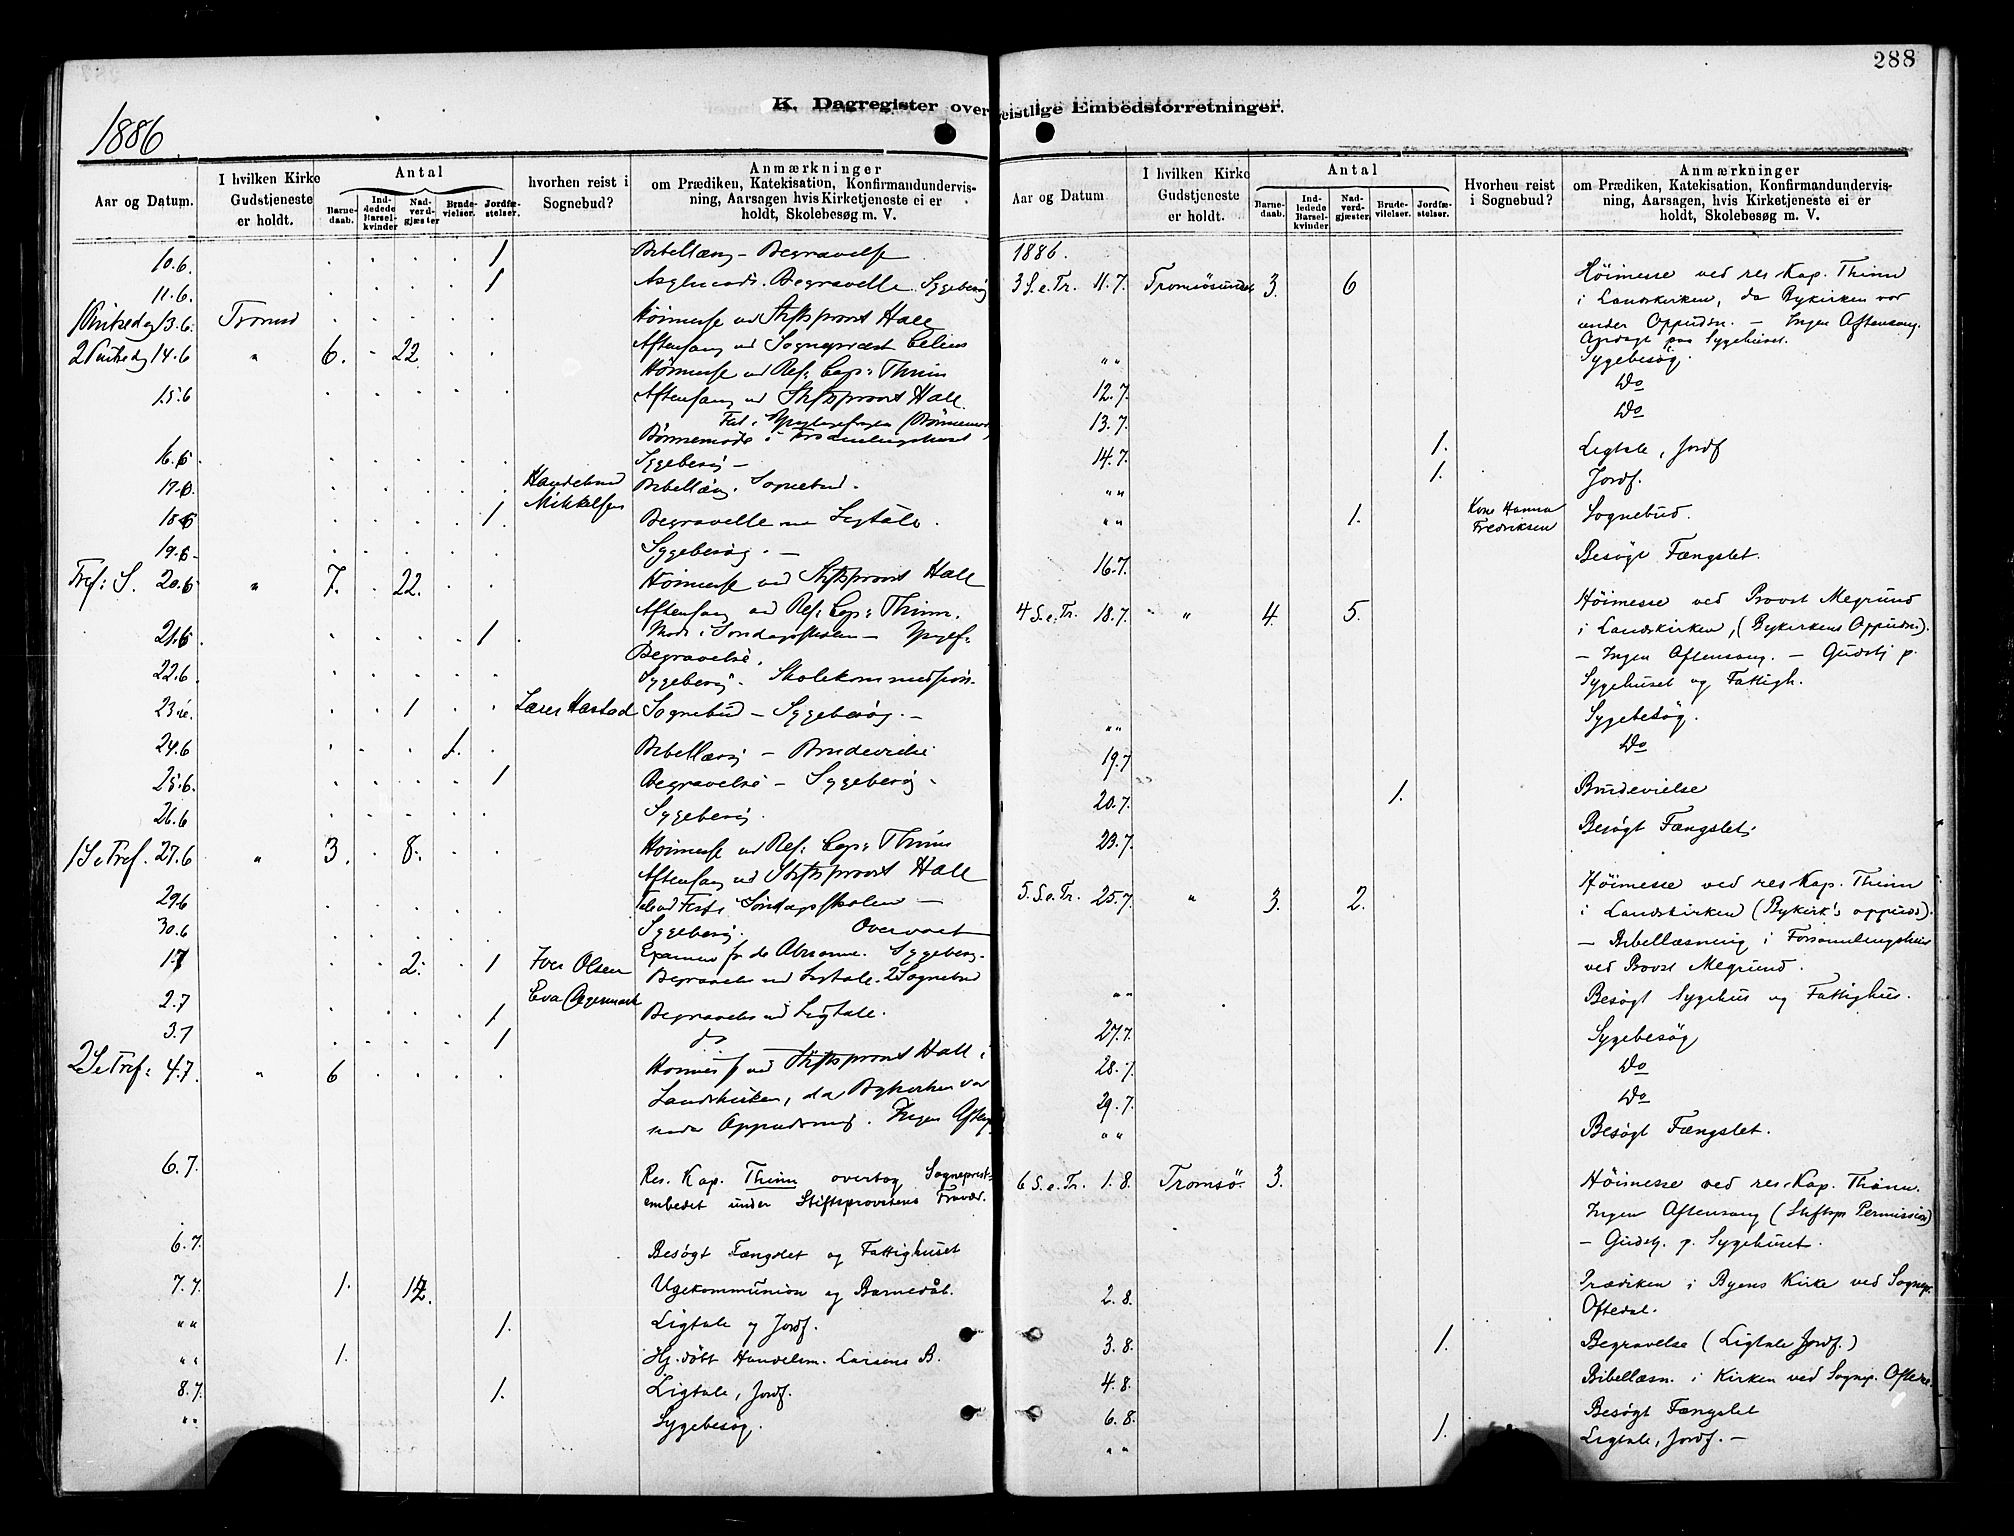 288
K. Dagregister over geistlige Embedsforretninger.
1886
Aar og Datum.
I hvilken Kirke Gudstjeneste er holdt.
Antal
Barnedaab.
Inddledede Barselkvinder
Nadverdgjæster
Brudevielser.
Jordfæstelser.
hvorhen reist i Sognebud?
Anmærkninger
om Prædiken, Katekisation, Konfirmandundervisning, Aarsagen hvis Kirketjeneste ei er holdt, Skolebesøg m. V.
10.6. 1 Bibellæsn – Begravelse
11.6. 1 Begravelse. Sygebesøg
1 Pintsedag 13.6. Høimesse ved Stiftsprovst Hall
Aftensang ved Sogneprest
2 Pintsedag 14.6 " 6. 22 Høimesse ved Res: Cap: Thinn
Aftensang ved Stiftsprovst Hall.
15.6
Børnemøde i Forsamlingshuset
16.6 Sygebesøg –
17.6 Bibellæsn. Sognebud.
Mikkelsen
18.6 1. Begravelse m Ligtale.
19.6 Sygebesøg. –
Tref: S. 20.6 " 7. 22. Høimesse ved Stiftsprovst Hall
Aftensang ved Res: Cap: Thinn.
21.6 1 Møde i Søndagsskolen –
Begravelse.
22.6. Sygebesøg. Skolekommission.
23.6. 1 Hastad Sognebud – Sygebesøg. –
24.6 1. Bibellæsn – Brudevielse
25.6. 1 Begravelse – Sygebesøg –
26.6 Sygebesøg.
1 S e Tref. 27.6 " 3. 8. Høimesse ved Res: Cap: Thinn
Aftensang ved Stiftsprovst Hall
29.6 Fest i Søndagsskolen –
30.6 Sygebesøg. Overvært
1.7 2. 1 Iver Olsen Examen for de Sygebesøg.
Begravelse ved Ligtale. 2 Sognebud
Eva
2.7 1 Begravelse ved Ligtale.
3.7 1 do
2 S e Tref: 4.7. " 6 Høimesse ved Stiftsprovst Hall i
Landskirken, da Bykirken var
under Oppudsning. Ingen Aftens
6.7. Res. Kap. Thinn overtog Sogneprest-
embedet under Stiftsprovstens Fravær.
6.7. Besøgt Fængslet og Fattighuset
7.7. 1. 12. Ugekommunion og Barnedåb.
" " 1. Ligtale og Jordf.
" " 1. Hj. døbt Handelsm. Larsens B.
8.7. 1. Ligtale, Jordf.
" " Sygebesøg.
Aar og Datum
I hvilken Kirke Gudstjeneste er holdt.
Antal
Barnedaab.
Inddledede Barselkvinder
Nadverdgjæster
Brudevielser.
Jordfæstelser.
Hvorhen reist i Sognebud?
Anmærkninger
om Prædiken, Katekisation, Konfirmandundervisning, Aarsagen, hvis Kirketjeneste ei er holdt, Skolebesøg m. V.
1886.
3 S. e. Tr. 11.7. Tromsøsundet 3. 6 Høimesse ved res Kap. Thinn
i Landskirken, da Bykirken var
under Oppudsn. – Ingen Aftensang.
paa Sygehuset.
" " Sygebesøg.
12.7. Do
13.7. Do
14.7. 1. Ligtale, Jordf
" " 1. Jordf.
" " 1. Kone Hanna Fredriksen Sognebud.
16.7. Besøgt Fængslet.
4 S. e. Tr. 18.7. " 4. 5. Høimesse ved Provst Megrund
i Landskirken, (Bykirkens Oppudsn.).
– Ingen Aftensang. – Gudstj p.
Sygehuset og Fattigh.
" " Sygebesøg.
19.7 Do
20.7. 1. Brudevielse
23.7. Besøgt Fængslet.
5. S. e. Tr. 25.7. " 3. 2. Høimesse ved res Kap. Thinn
i Landskirken (Bykirk's oppuds).
– Bibellæsning i Forsamlingshus
ved Provst Megrund.
" " Besøgt Sygehus og Fattighus.
27.7. Sygebesøg
28.7. Do
29.7. Do
" " Besøgt Fængslet.
6 S. e. Tr. 1.8. Tromsø. 3. Høimesse ved res Kap. Thinn.
Ingen Aftensang (Stiftspr Permission)
– Gudstj. p. Sygehuset.
2.8. Prædiken i Byens Kirke ved Sognep.
Oftedal.
3.8. 1. Begravelse (Ligtale Jordf.)
4.8. Bibellæsn. i Kirken ved Sognep. Oftedal.
6.8. Besøgt Fængslet
" " 1. Ligtale, Jordf. –